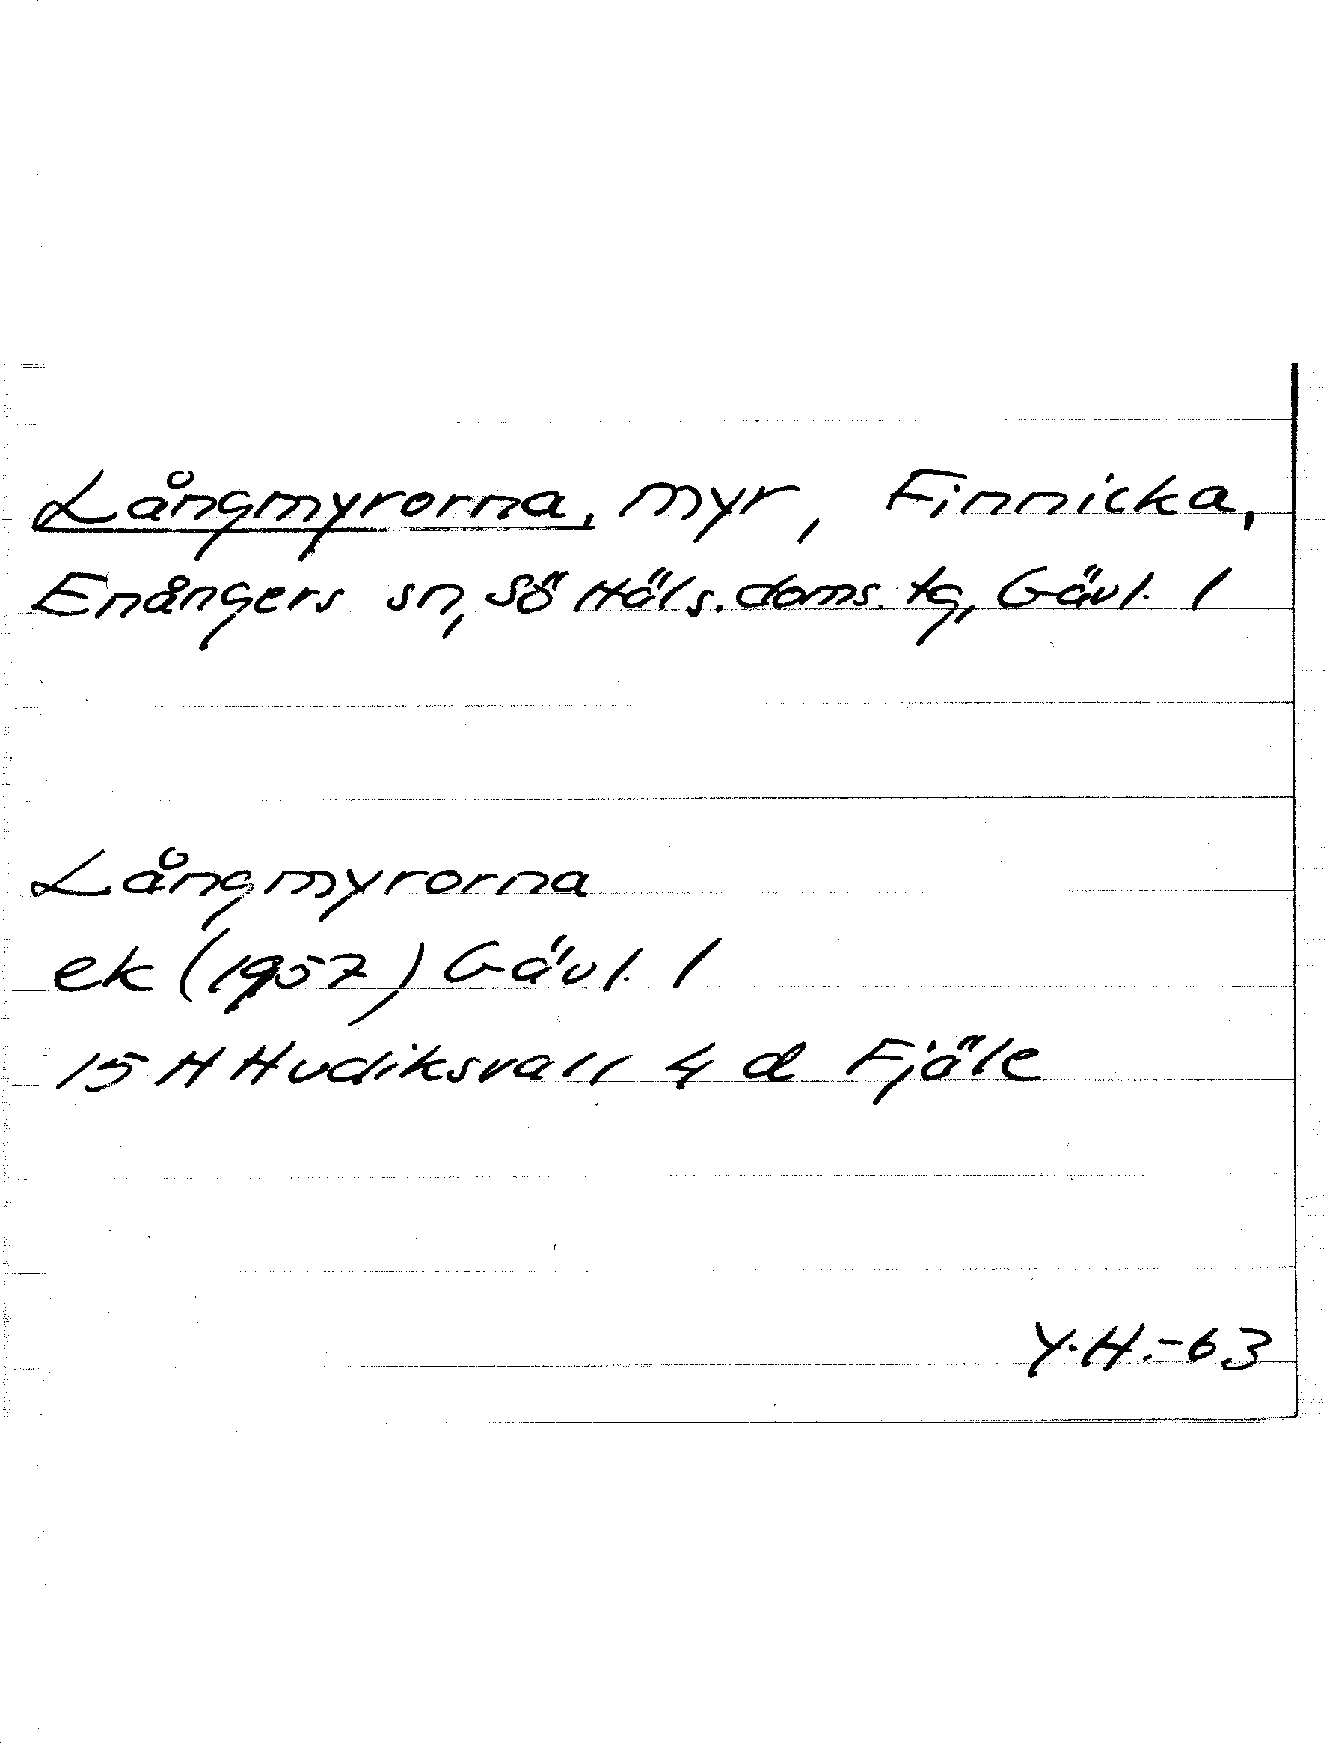 Långmyrorna, myr, Finnicka,
Enångers sn, Sö Häls. doms. tg, Gävl. l
Långmyrorna
ek (1957) Gävl. l
15 H Hudiksvall 4 d Fjäle
Y.H.-63